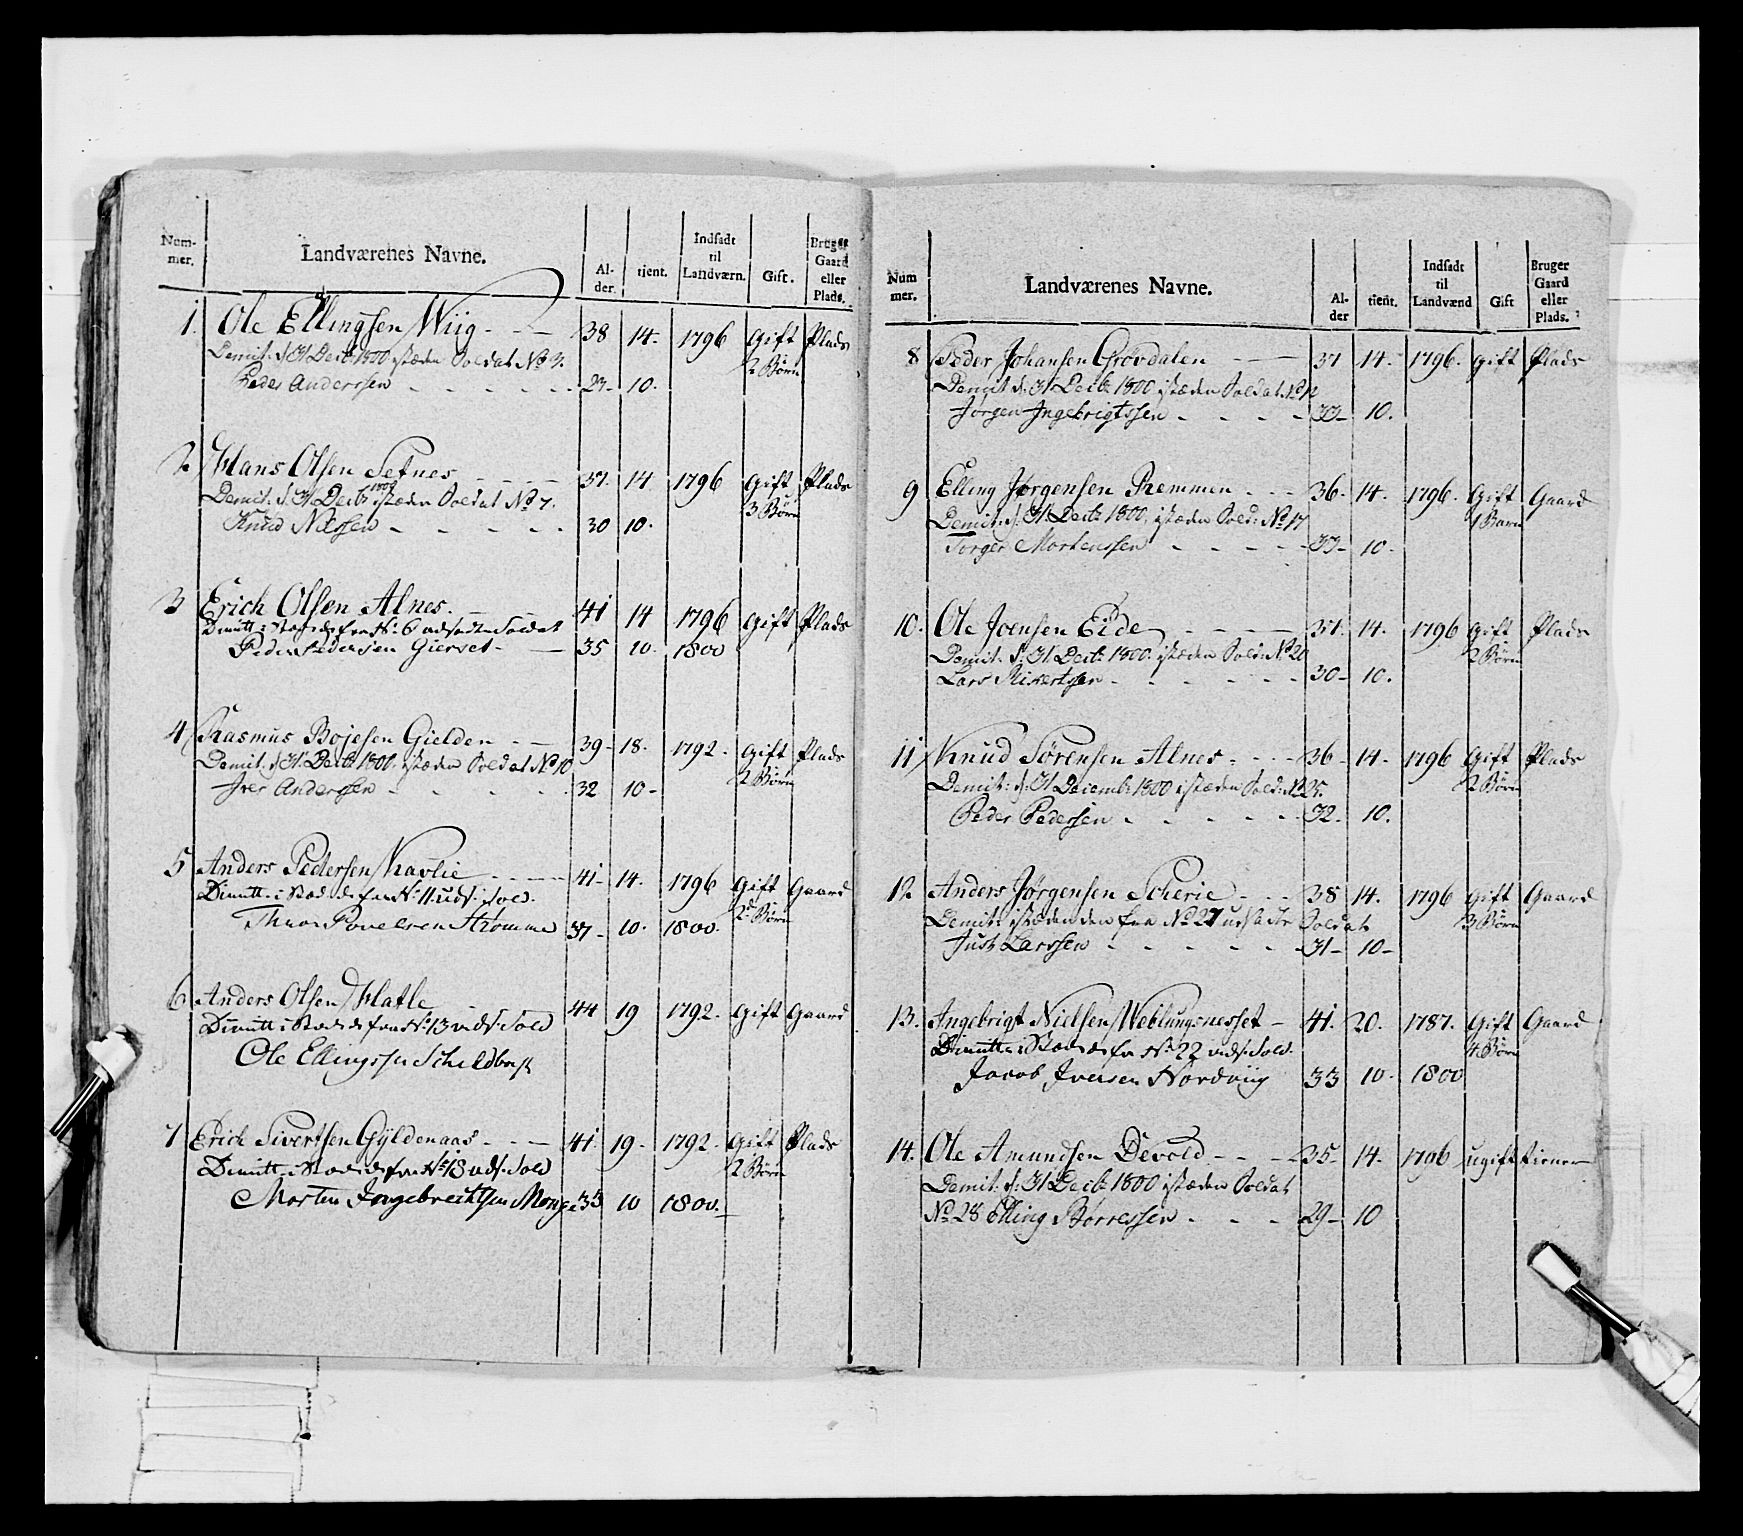 Num-
mer.
Landværenes Navne.
Al-
der.
tjent.
Indsadt
til
Landværn.
Gift.
Bruger
Gaard
eller
Plads.
1. Ole Ellingsen Wiig - - - 38 14. 1796 Gift Plads
Demit: d: 31 Decbr 1800 isteden Soldat No 3. 2 Børn
Peder Anderssen - - - - - 29. 10.
2 Hans Olsen Setnes - - - - 37. 14 1796 Gift Plads
Demit: d: 31 Decbr 1800 isteden Soldat No 7. 3 Børn
Knud Nilssen - - - - - 30 10.
3 Erich Olsen Alnes. - - - 41 14 1796 Gift Plads
Dimitt: i Stædedet fra No: 6 udsadte Soldat
Peder Pedersen Gierset - - 35 10. 1800
4 Rasmus Bojesen Gielden - - - 39. 18. 1792. Gift Plads
Demit: d: 31 Decbr 1800. isteden Soldat No 10 2 Børn
Iver Anderssen - - - - - 32 10 -
5 Anders Pedersen Kavlie - - - - 41. 14. 1796 Gift Gaard
Dimitt: i Stædedet fra No: 11. uds: Sold. 2 Børn
Thuor Povelsen Strømme 37 - 10. 1800.
6 Anders Olsen Hatle - - - 44 19 1792. Gift Gaard
Dimitt: i Stædedet fra No: 13 uds: Sold
Ole Ellingssen Schildbr
7 Erich Sivertsen Gyldenaas - - - 41. 19 - 1792. Gift Plads
Dimitt: i Stædedet fra No: 18 uds: Sold 2 Børn
Morten Ingebrechtsen Monge 35 10 1800.
Num
mer.
Landværenes Navne.
Al-
der
tient.
Indsadt
til
Landværnd
Gift
Bruger
Gaard
eller
Plads.
8 Peder Johansen Grøvdalen - - - 37 14. 1796. Gift Plads
Demit d: 31 Decbr 1800 isteden Soldat No 12
Jørgen Ingebrigtssen - - - - 33 - 10.
9 Elling Jørgensen Remmen - - - 36. 14. 1796. Gift Gaard
Demit: d: 31. Decbr 1800, isteden Sold: No 17 1 Barn
Torger Mortenssen - - - - 33 - 10.
10. Ole Joensen Eide - - - - 37. 14. 1796 Gift Plads
Demit: d: 31. Decbr 1800. isteden Sold: No 20 2 Børn
Lars Rikertssen - - - - - 30 - 10.
11 Knud Sørensen Alnes - - - 36 - 14. 1796 Gift Plads
Demit: d: 31 Decembr 1800 isteden Sold: No 25. 2 Børn
Peder Pedersen - - - - - 32. 10.
12. Anders Jørgensen Scherie - - - 38 14. 1796 Gift Gaard
Demit: isteden den fra No 27 udsadte Soldat 3 Børn
Just Larssen - - - - - 31 - 10 -
13. Ingebrigt Nielsen Weblungsnesset - 41. 20. 1787. Gift Gaard
Dimitt: i Stædedet fra No 22 uds: Sold. 4 Børn
Jacob Iversen Nordviig 33 10 1800
14. Ole Amundsen Devold - - - 35. 14. 1796 ugift tiener
Demit: d: 31 Decbr 1800 isteden Soldat
No 28 Elling Børressen - - - 29 - 10